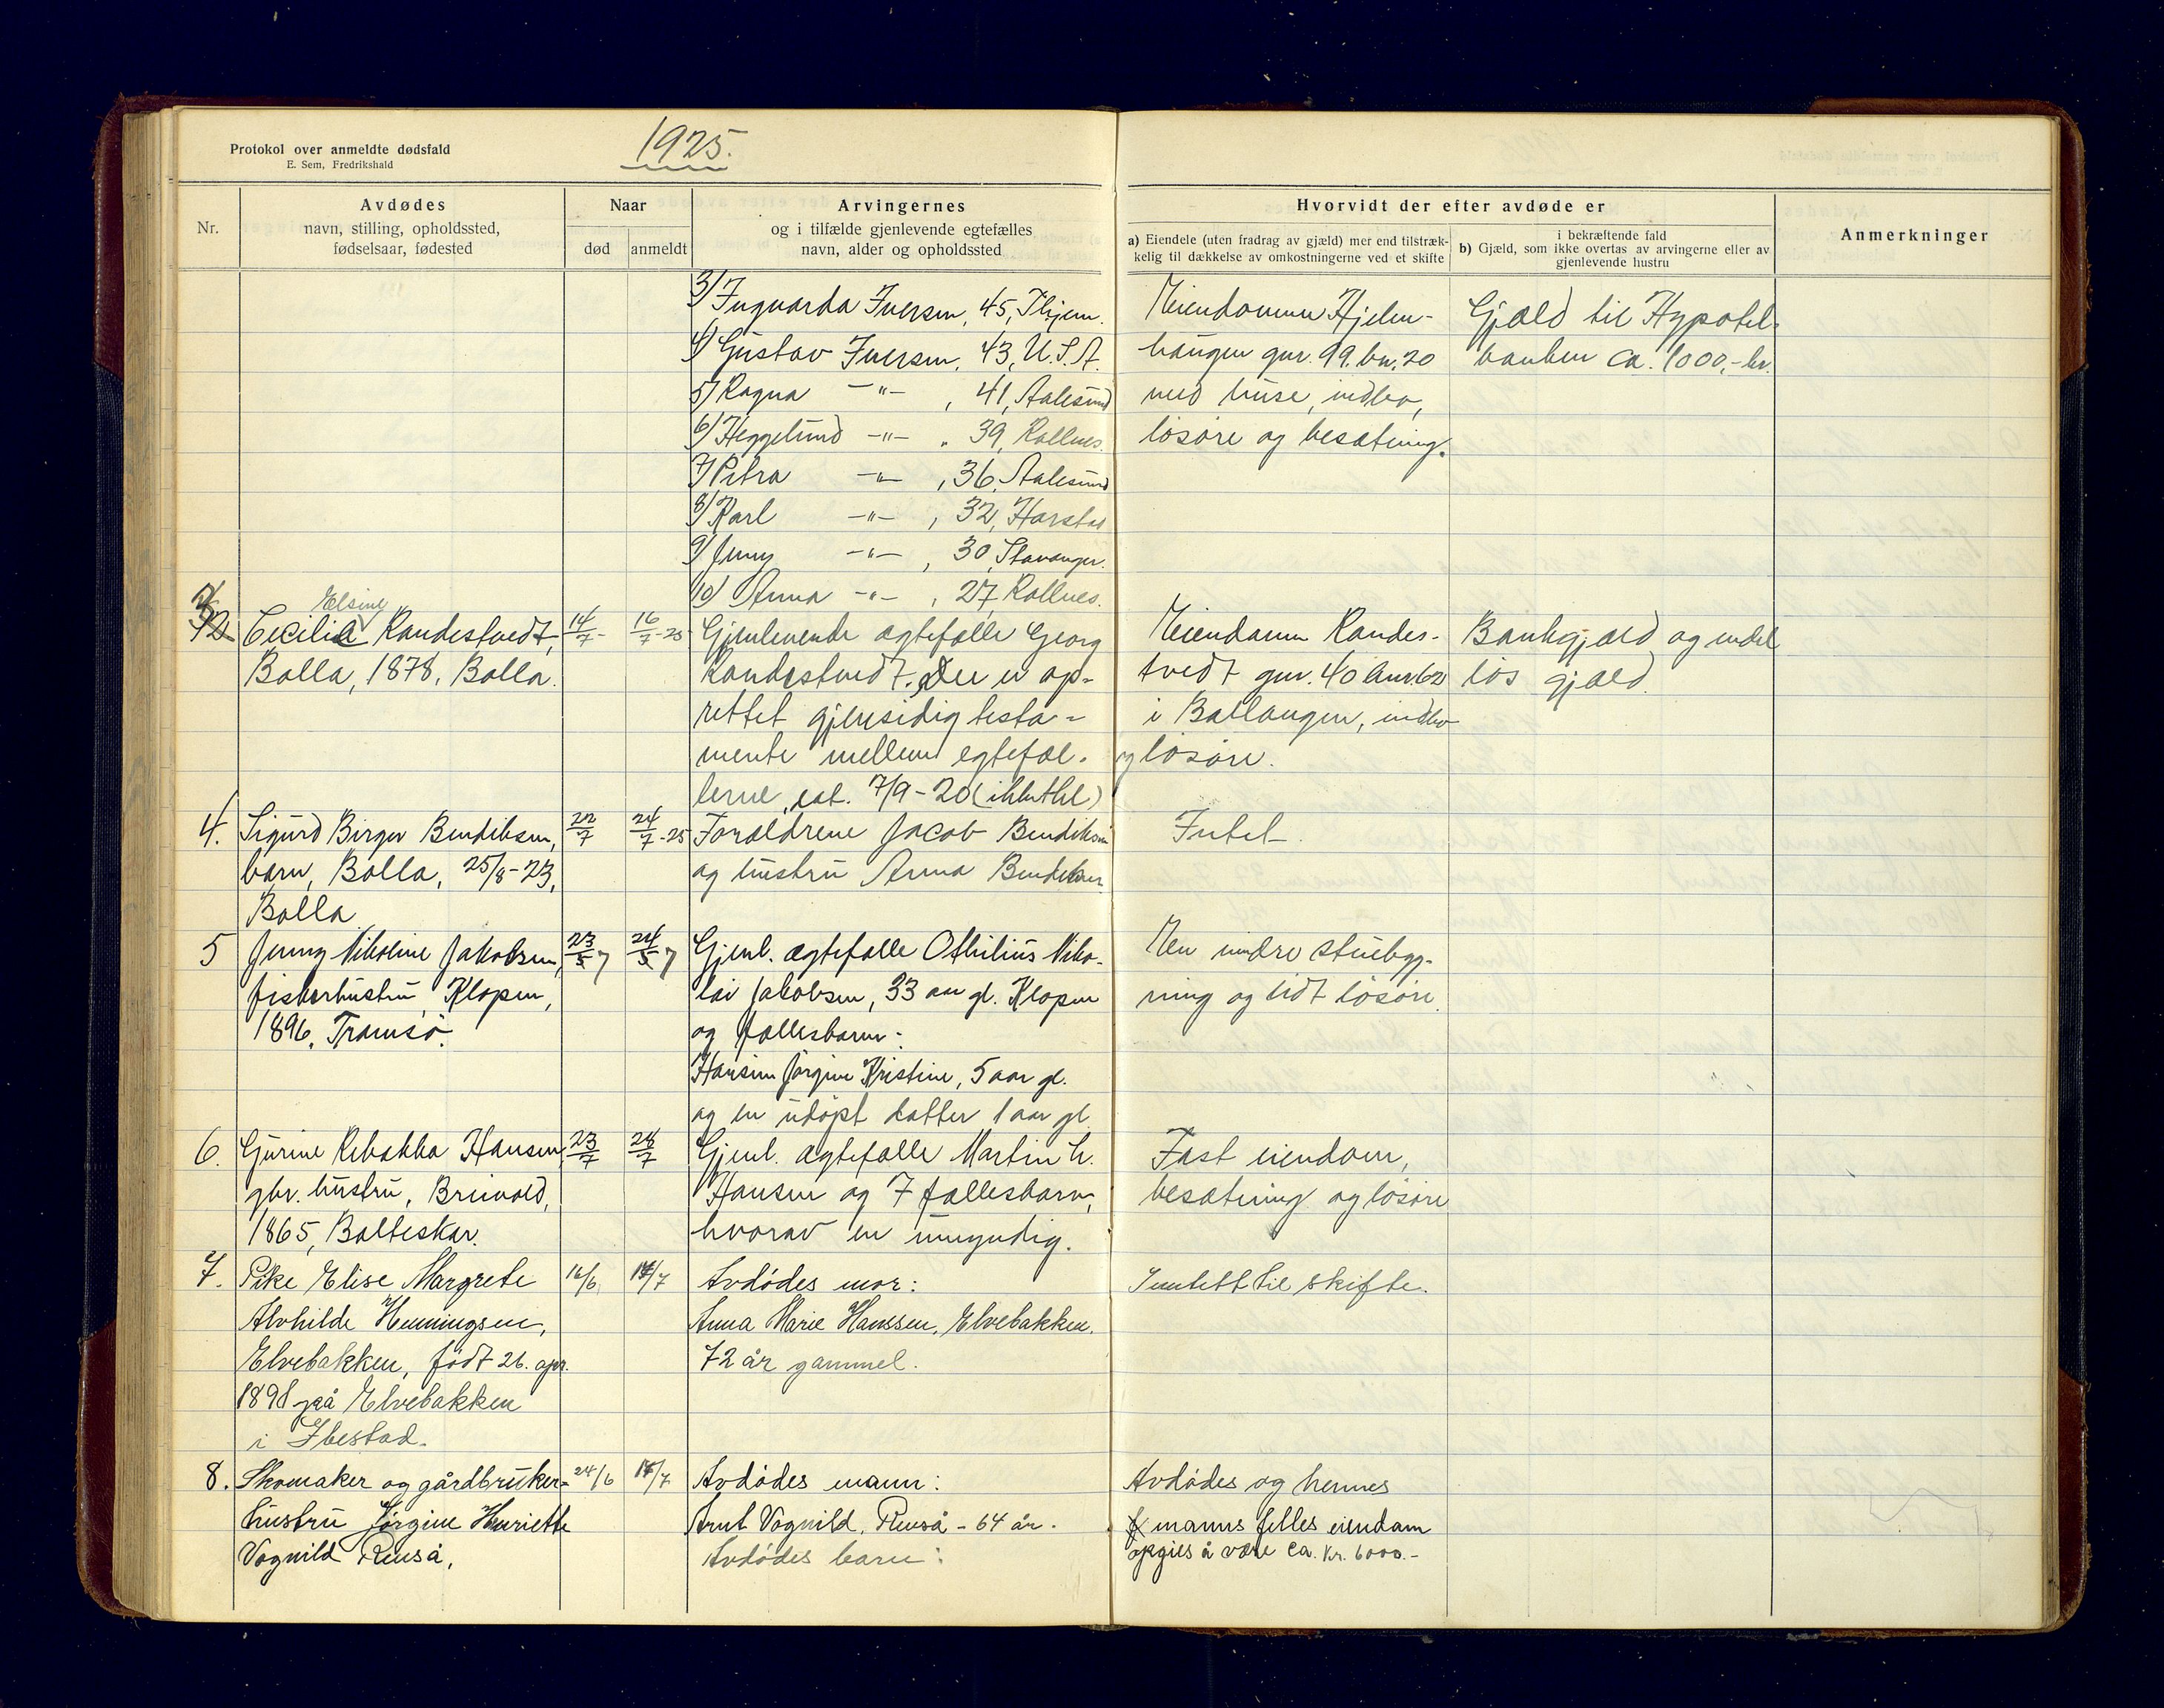 Protokol over anmeldte dødsfald
E. Sem, Fredrikshald
1925.
Nr.
Avdødes
navn, stilling, opholdssted,
fødselsaar, fødested
Naar
død
anmeldt
Arvingernes
og i tilfælde gjenlevende egtefælles
navn, alder og opholdssted
Hvorvidt der efter avdøde er
a) Eiendele (uten fradrag av gjæld) mer end tilstræk-
kelig til dækkelse av omkostningerne ved et skifte
i bekræftende fald
b) Gjæld, som ikke overtas av arvingerne eller av
gjenlevende hustru
Anmerkninger
3/ Ingvarda Iversen, 45, Thjem.
4/ Gustav Iversen, 43, U.S.A.
5/ Ragna -"- , 41, Aalesund
6/ Heggelund -"- , 39, Rollnes.
7/ Petra -"- , 36, Aalesund
8/ Karl -"- , 32, Harstad
9/ Jenny -"- , 30, Stavanger.
10/ Anna -"- , 27, Rollnes.
Eiendommen Hjelm-
haugen gnr. 99. bn. 20
med huse, indbo,
løsøre og besætning.
Gjæld til Hypotek-
banken ca. 1000,- kr.
Elsine
Cecilie Randestvedt,
Balla, 1878, Balla.
14/7 -
16/7 - 25
Gjenlevende ægtefælle Georg
Randestvedt. Der er op-
rettet gjensidig testa-
mente mellem egtefæl-
lerne, dat. 7/9-20 (ikke thl)
Eiendommen Randes-
tvedt gnr. 40 bnr. 62
i Ballangen, indbo
og løsøre.
Bankgjæld og endel
løs gjæld.
4. Sigurd Birger Bendiksen,
barn, Balla, 25/8-23,
Balla
22/7
24/7 - 25
Forældrene Jacob Bendiksen
og hustru Anna Bendiksen
Intet
5 Jenny Nikoline Jakobsen,
fiskerhustru, Klopen,
1896, Tromsø.
23/5 7
24/5 7
Gjenl. ægtefælle Othilius Niko-
lai Jakobsen, 33 aar gl. Klopen
og fællesbarn:
Hansine Jørgine Kristine, 5 aar gl.
og en udøpt datter 1 aar gl.
En mindre stuebyg-
ning og lidt løsøre.
6. Gurine Rebekka Hansen,
gbr. hustru, Breivold,
1865, Bolteskar.
23/7
24/7
Gjenl. ægtefælle Martin L.
Hansen og 7 fællesbarn,
hvorav en umyndig.
Fast eiendom,
besætning og løsøre
7. Pike Elise Margrete
Alvhilde Henningsen,
Elvebakken, født 26. apr.
1898 på Elvebakken
i Ibestad.
16/6
14/7
Avdødes mor:
Anna Marie Hanssen, Elvebakken,
72 år gammel.
Intett til skifte.
8. Skomaker og gårdbruker-
hustru Jørgine Henriette
Vognild Renså,
24/6
14/7
Avdødes mann:
Arnt Vognild, Renså - 64 år.
Avdødes barn:
Avdødes og hennes
manns felles eiendom
opgies å være ca. kr. 6000.-